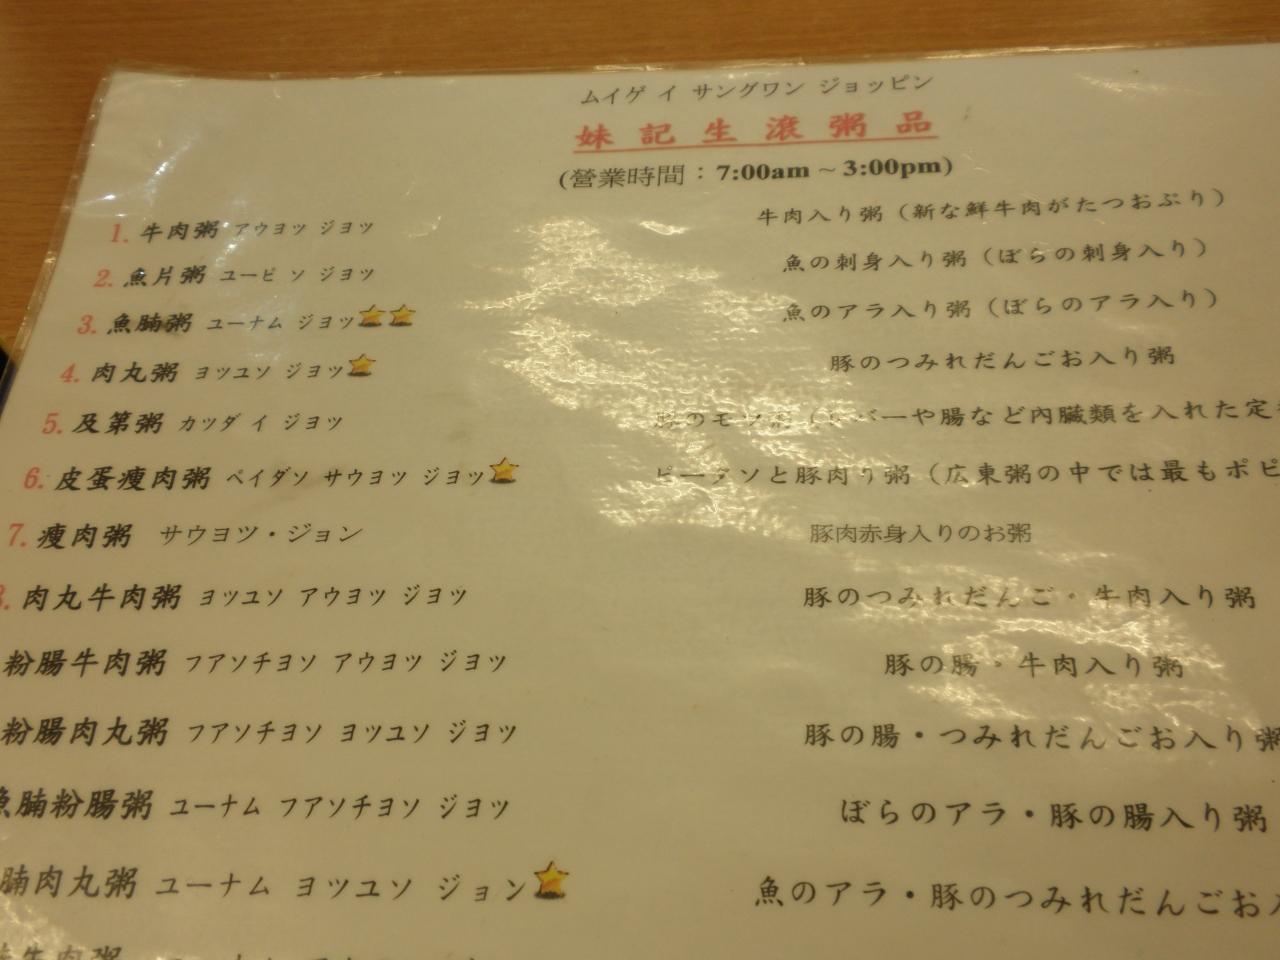 ムイゲ イ サングワン ジョッピン
妹記生滾粥品
(營業時間：7:00am ~ 3:00pm)
1. 牛肉粥 アウヨッ ジヨッ 牛肉入り粥（新な鮮牛肉がたつおぷり）
2. 魚片粥 ユーピ ソ ジヨッ 魚の刺身入り粥（ぼらの刺身入り）
3. 魚腩粥 ユーナム ジヨッ 魚のアラ入り粥（ぼらのアラ入り）
4. 肉丸粥 ヨツユソ ジヨッ 豚のつみれだんごお入り粥
5. 及第粥 カッダ イ ジヨッ 豚のモツ粥（レバーや腸など內臓類を入れた定
6. 皮蛋瘦肉粥 ペイダソ サウヨツ ジヨッ ピータソと豚肉り粥（広東粥の中では最もポピ
7. 瘦肉粥 サウヨツ・ジョン 豚肉赤身入りのお粥
8. 肉丸牛肉粥 ヨッユソ アウヨッ ジヨッ 豚のつみれだんご・牛肉入り粥
粉腸牛肉粥 フアソチヨソ アウヨッ ジヨッ 豚の腸・牛肉入り粥
粉腸肉丸粥 フアソチヨソ ヨツユソ ジヨッ 豚の腸・つみれだんごお入り粥
魚腩粉腸粥 ユーナム フアソチヨソ ジヨッ ぼらのアラ・豚の腸入り粥
腩肉丸粥 ユーナム ヨツユソ ジョン 魚のアラ・豚のつみれだんごお入
牛肉粥